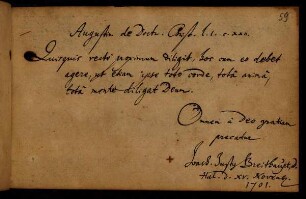 59
Augustin de Doct. Christ. l. 1. c.
Quisquis recte proximum diligit, hoc cum eo debet
agere, ut etiam ipse toto corde, totâ animâ,
totâ mente diligat Deum.
Omnem à Deo gratiam
precatur
Joach. Justus Breithaupt D.
Hal. d. XV. Novembr.
1701.